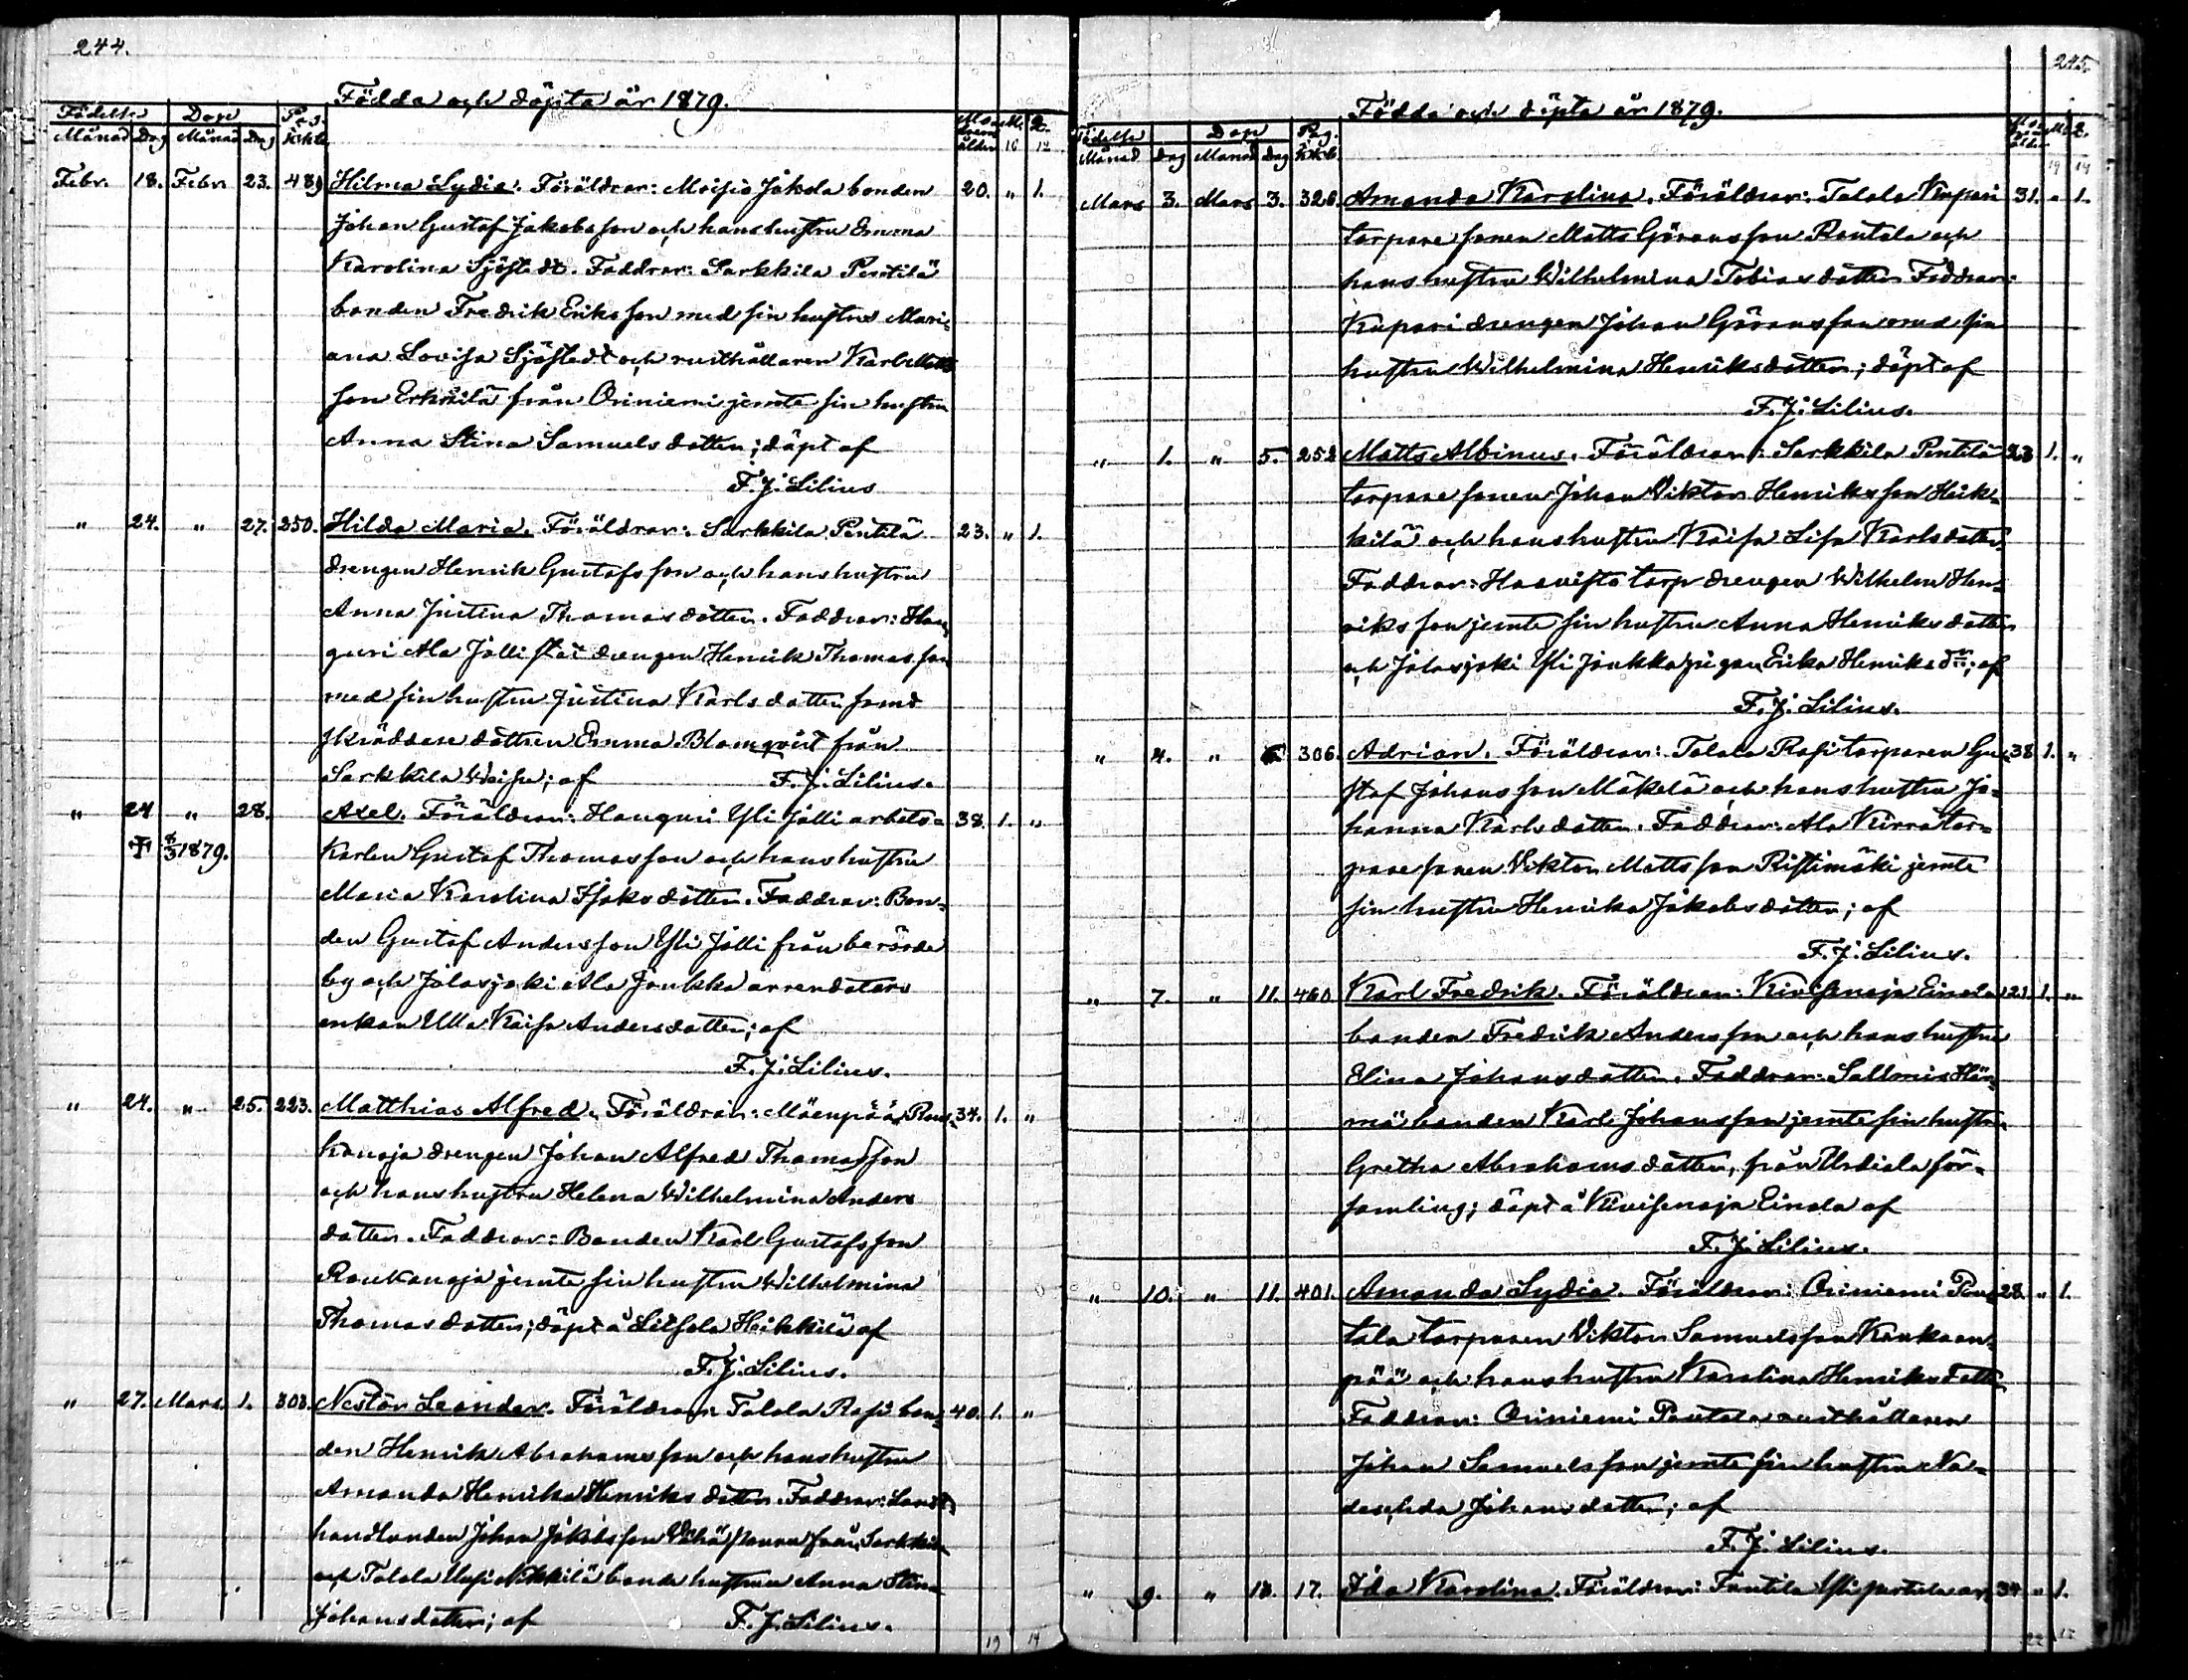 244.
Födda och döpta år 1879.
Födelse Dop Pag. Moderns M. Q.
Månad Dag Månad Dag kkb. ålder 18 12
Febr. 18. Febr. 23. 489 Hilma Lydia. Föräldrar: Moisio Jakola bonden 20. " 1.
Johan Gustaf Jakobsson och hans hustru Emma
Karolina Sjöstedt. Faddrar: Sarkkila Pentilä
bonden Fredrik Eriksson med sin hustru Mari-
ana Lovisa Sjöstedt och rusthållaren Karl Matts
son Erkkilä från Oriniemi jemte sin hustru
Anna Stina Samuelsdotter; döpt af
F. J. Lilius
" 24. " 27. 250. Hilda Maria. Föräldrar: Sarkkila Pentilä 23. " 1.
drengen Henrik Gustafsson och hans hustru
Anna Justina Thomasdotter. Faddrar: Hon
guri Ala Jalli drengen Henrik Thomasson
med sin hustru Justina Karlsdotter samt
skräddare dottren Emma Blomqvist från
Sarkkila; af F. J. Lilius.
" 24 " 28. Axel. Föräldrar: Honguri Yli Jalli arbets- 38. 1. "
† 8/3 1879. karlen Gustaf Thomasson och hans hustru
Maria Karolina Isaksdotter. Faddrar: Bon-
den Gustaf Andersson Yli Jalli från berörde
by och Jalasjoki Ala Joukka arrendators
enkan Ulla Kaisa Andersdotter; af
F. J. Lilius.
" 24. " 25. 223. Matthias Alfred. Föräldrar: Mäenpää Rau- 34. 1. "
kanoja drengen Johan Alfred Thomasson
och hans hustru Helena Wilhelmina Anders
dotter. Faddrar: Bonden Karl Gustafsson
Raukanoja jemte sin hustru Wilhelmina
Thomasdotter; döpt å Litsola Heikkilä af
F. J. Lilius.
" 27. Mars 1. 303. Nestor Leander. Föräldrar: Talala Rasi bon- 40. 1. "
den Henrik Abrahamsson och hans hustru
Amanda Henrika Henriksdotter. Faddrar: Landt
handlanden Johan Jakobsson från Sarkkila
och Talala Uusi Nikkilä bonde hustrun Anna Stina
Johansdotter; af F. J. Lilius.
19 14
245.
Födda och döpta år 1879.
Födelse Dop Pag. Moderns M. Q.
Månad Dag Månad Dag kkb. ålder 19 14
Mars 3. Mars 3. 326. Amanda Karolina. Föräldrar: Talala Kupari 31. " 1.
torpare sonen Matts Göransson Rantala och
hans hustru Wilhelmina Tobiasdotter Faddrar:
Kupari drengen Johan Göransson med sin
hustru Wilhelmina Henriksdotter; döpt af
F. J. Lilius.
" 1. " 5. 252 Matts Albinus. Föräldrar: Sarkkila Pentilä 23 1. "
torpare sonen Johan Viktor Henriksson Heik-
kilä och hans hustru Kaisa Lisa Karlsdotter
Faddrar: Haavisto torp drengen Wilhelm Hen-
riksson jemte sin hustru Anna Henriksdotter
och Jalasjoki Yli Joukka pigan Erika Henriksdtr; af
F. J. Lilius.
" 4. " 306. Adrian. Föräldrar: Talala Rasi torparen Gu- 38 1. "
staf Johansson Mäkelä och hans hustru Jo-
hanna Karlsdotter. Faddrar: Ala Kirra tor-
pare sonen Viktor Mattsson Ristimäki jemte
sin hustru Henrika Jakobsdotter; af
F. J. Lilius.
" 7. " 11. 460 Karl Fredrik. Föräldrar: Kivisenoja Einola 21. 1. "
bonden Fredrik Andersson och hans hustru
Elina Johansdotter. Faddrar: Sallmis Här-
mä bonden Karl Johansson jemte sin hustru
Gretha Abrahamsdotter, från Urdiala för-
samling; döpt å Kivisenoja Einola af
F. J. Lilius.
" 10. " 11. 401. Amanda Lydia. Föräldrar: Oriniemi Pen- 28. " 1.
tala torparen Viktor Samuelsson Kankaan-
pää och hans hustru Karolina Henriksdotter
Faddrar: Oriniemi Pentala rusthållaren
Johan Samuelsson jemte sin hustru Na-
deschda Johansdotter; af
F. J. Lilius.
" 9. " 13. 17. Ida Karolina. Föräldrar: Tantila Ylipertula ar- 34 " 1.